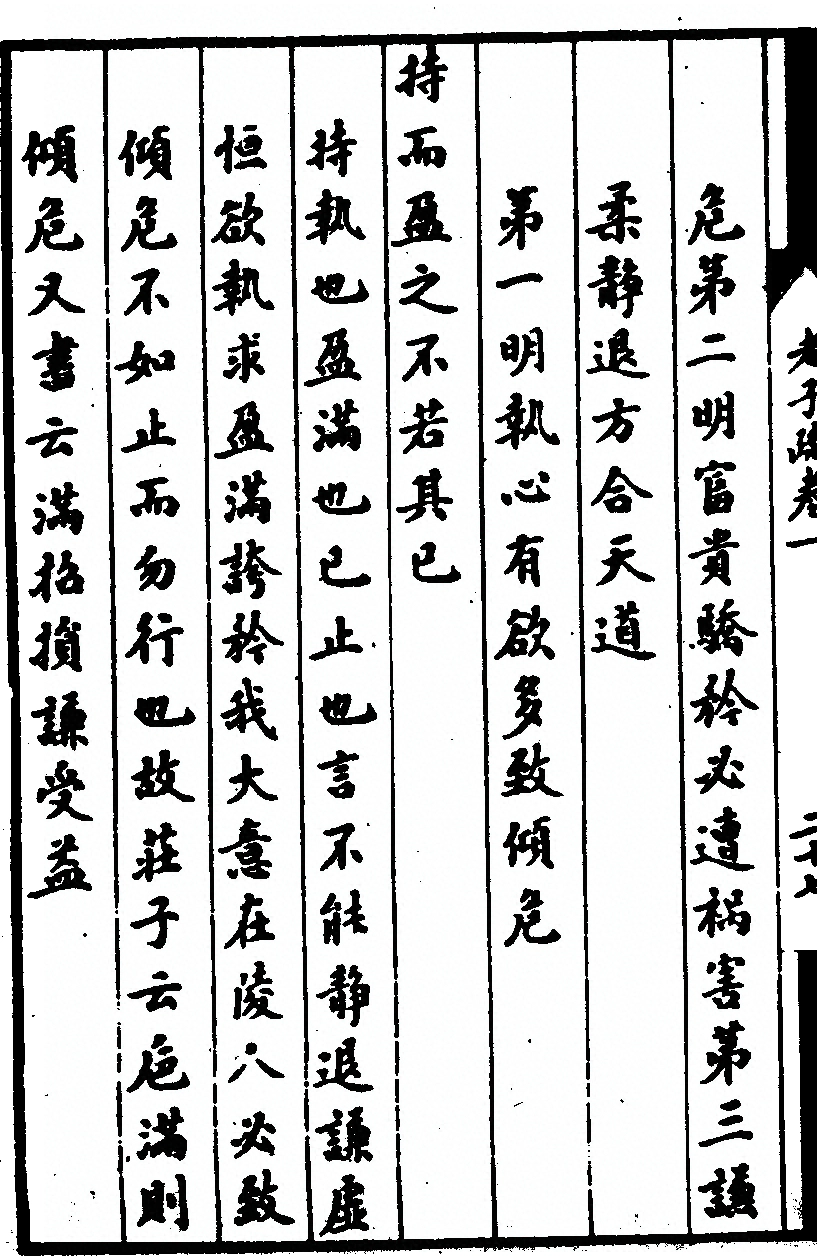 老子疏卷一
二十七
危第二明富貴驕矜必遭禍害第三謙
柔靜退方合天道
第一明執心有欲多致傾危
持而盈之不若其已
持執也盈滿也已止也言不能靜退謙虛
恒欲執求盈滿誇矜我大意在陵八必致
傾危不如止而勿行也故莊子云巵滿則
傾危又書云滿招損謙受益